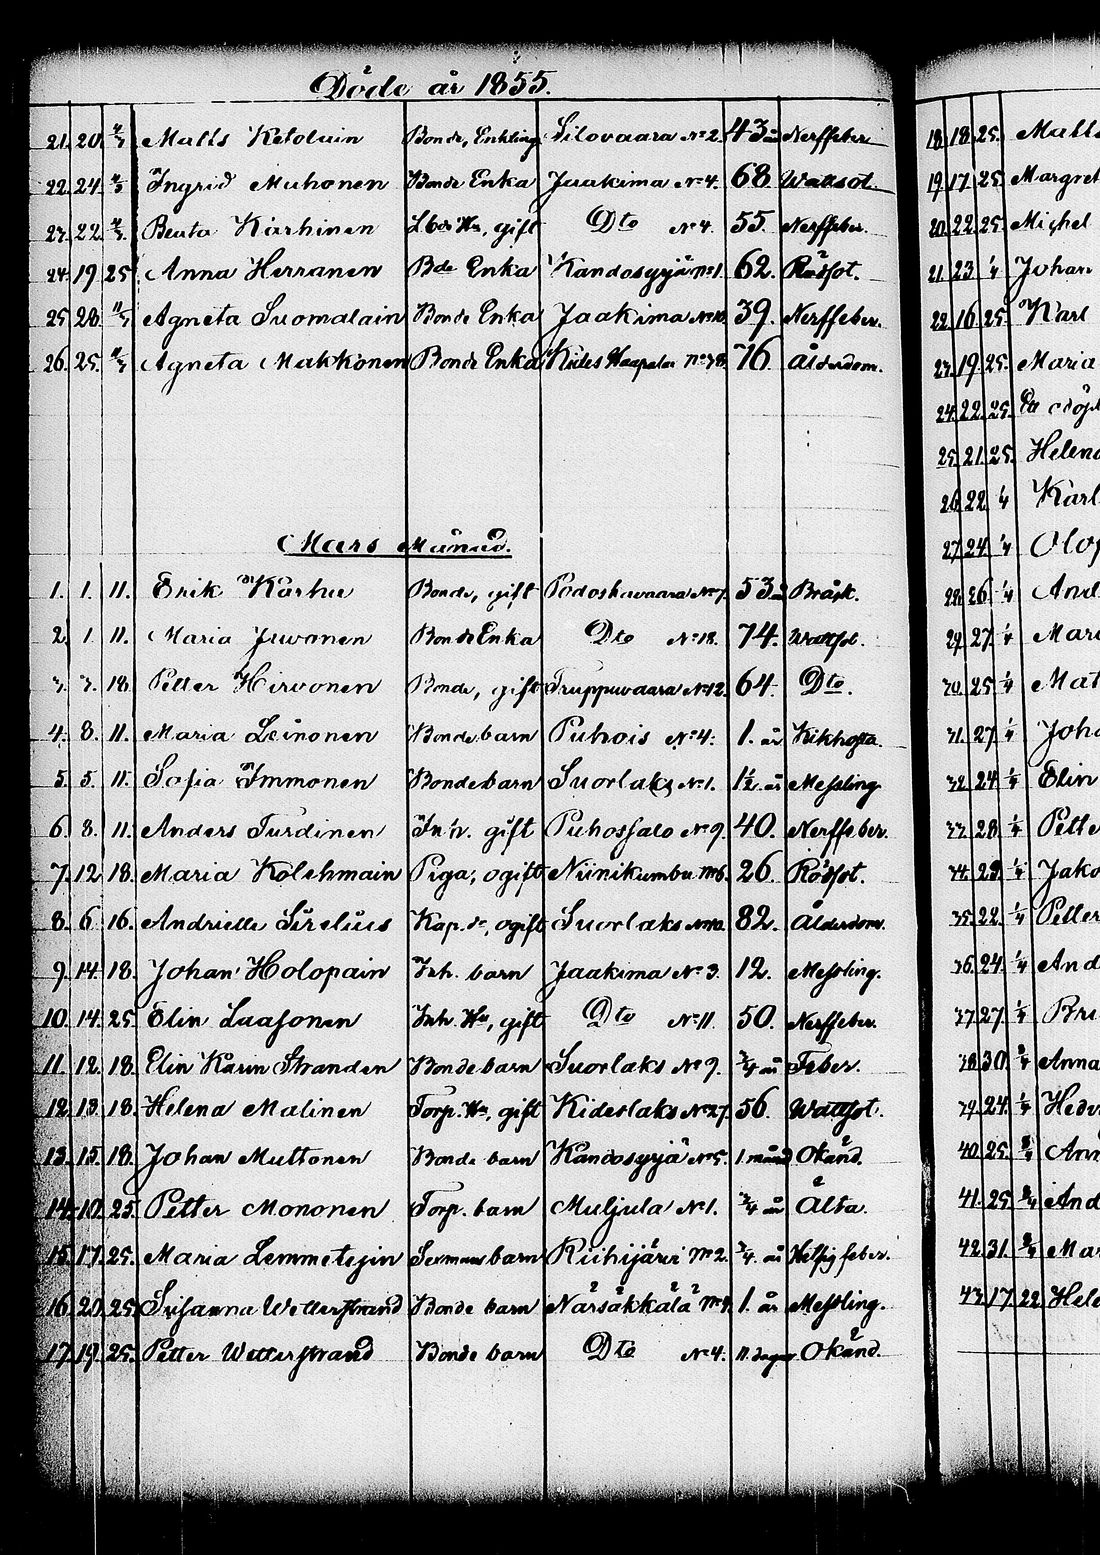 Döde år 1855.
21. 20. 4/3 Matts Ketolain Bonde, Enkling Silovaara No 2. 43 år Nerffeber
22. 24. 4/3 Ingrid Muhonen Bonde Enka Jaakima No 4. 68 Wattsot.
23. 22. 4/3. Beata Karhinen gift Dto No 4. 55. Nerffeber.
24. 19. 25 Anna Herranen Bde Enka Kandosyrjä No 1. 62. Rödsot.
25. 28. 11/3 Agneta Suomalain Bonde Enka Jaakima No 10. 39. Nerffeber.
26. 25. 11/3 Agneta Makkonen Bonde Enka Kides 76. Ålderdom.
Mars Månad.
1. 1. 11. Erik Karhu Bonde, gift Podoskavaara No 7. 53 år Bråck.
2. 1. 11. Maria Juvonen Bonde Enka Dto No 18. 74. Wattsot.
3. 7. 18. Petter Hirvonen Bonde, gift Truppuvaara No 12. 64. Dto.
4. 8. 11. Maria Leinonen Bonde barn Puhois No 4. 1. år Kikhosta.
5. 5. 11. Sofia Immonen Bonde barn Suorlaks No 1. 1½ år Messling
6. 8. 11. Anders Turdinen Inh. gift Puhossalo No 9. 40. Nerffeber.
7. 12. 18. Maria Kolehmain Piga, ogift Niinikumbu No 6. 26. Rödsot.
8. 6. 16. Andriette Sirelius Kap. dr, ogift Suorlaks 82. Ålderdom.
9. 14. 18. Johan Holopain Inh. barn Jaakima No 3. 12. Messling.
10. 14. 25. Elin Laasonen Inh. Hu, gift Dto No 11. 50. Nerffeber.
11. 12. 18. Elin Karin Stranden Bonde barn Suorlaks No 9. ¾ år Feber.
12. 13. 18. Helena Malinen Torp. Hu, gift Kideslaks No 27. 56. Wattsot.
13. 15. 18. Johan Muttonen Bonde barn Kandosyrjä No 5. 1. månd Okänd.
14. 10. 25. Petter Mononen Torp. barn Muljula No 1. ¾ år Älta.
15. 17. 25. Maria Lemmetyin barn Riihijärvi No 2. ¾ år Hettsig feber.
16. 20. 25. Susanna Wetterstrand Bonde barn Närsäkkälä No 4. 1. år Messling.
17. 19. 25. Petter Wetterstrand Bonde barn Dto No 4. 11. dagar Okänd.
18. 18. 25. Matts
19. 17. 25. Margret
20. 22. 25. Michel
21. 23. ¼ Johan
22. 16. 25. Karl
23. 19. 25. Maria
24. 22. 25. Ett
25. 21. 25. Helena
26. 22. ¼ Karl
27. 24. ¼ Olof
28. 26. ¼ And
29. 27. ¼ Mari
30. 25. ¼ Mat
31. 27. ¼ Joha
32. 24. ¼ Elin
33. 28. ¼ Pette
34. 23. ¼ Jako
35. 22. ¼ Petter
36. 24. ¼ And
37. 27. ¼ Bri
38. 30. Anna
39. 24. ¼ Hedv
40. 25. Ann
41. 25. And
42. 31. Mar
43. 17. 22. Hele